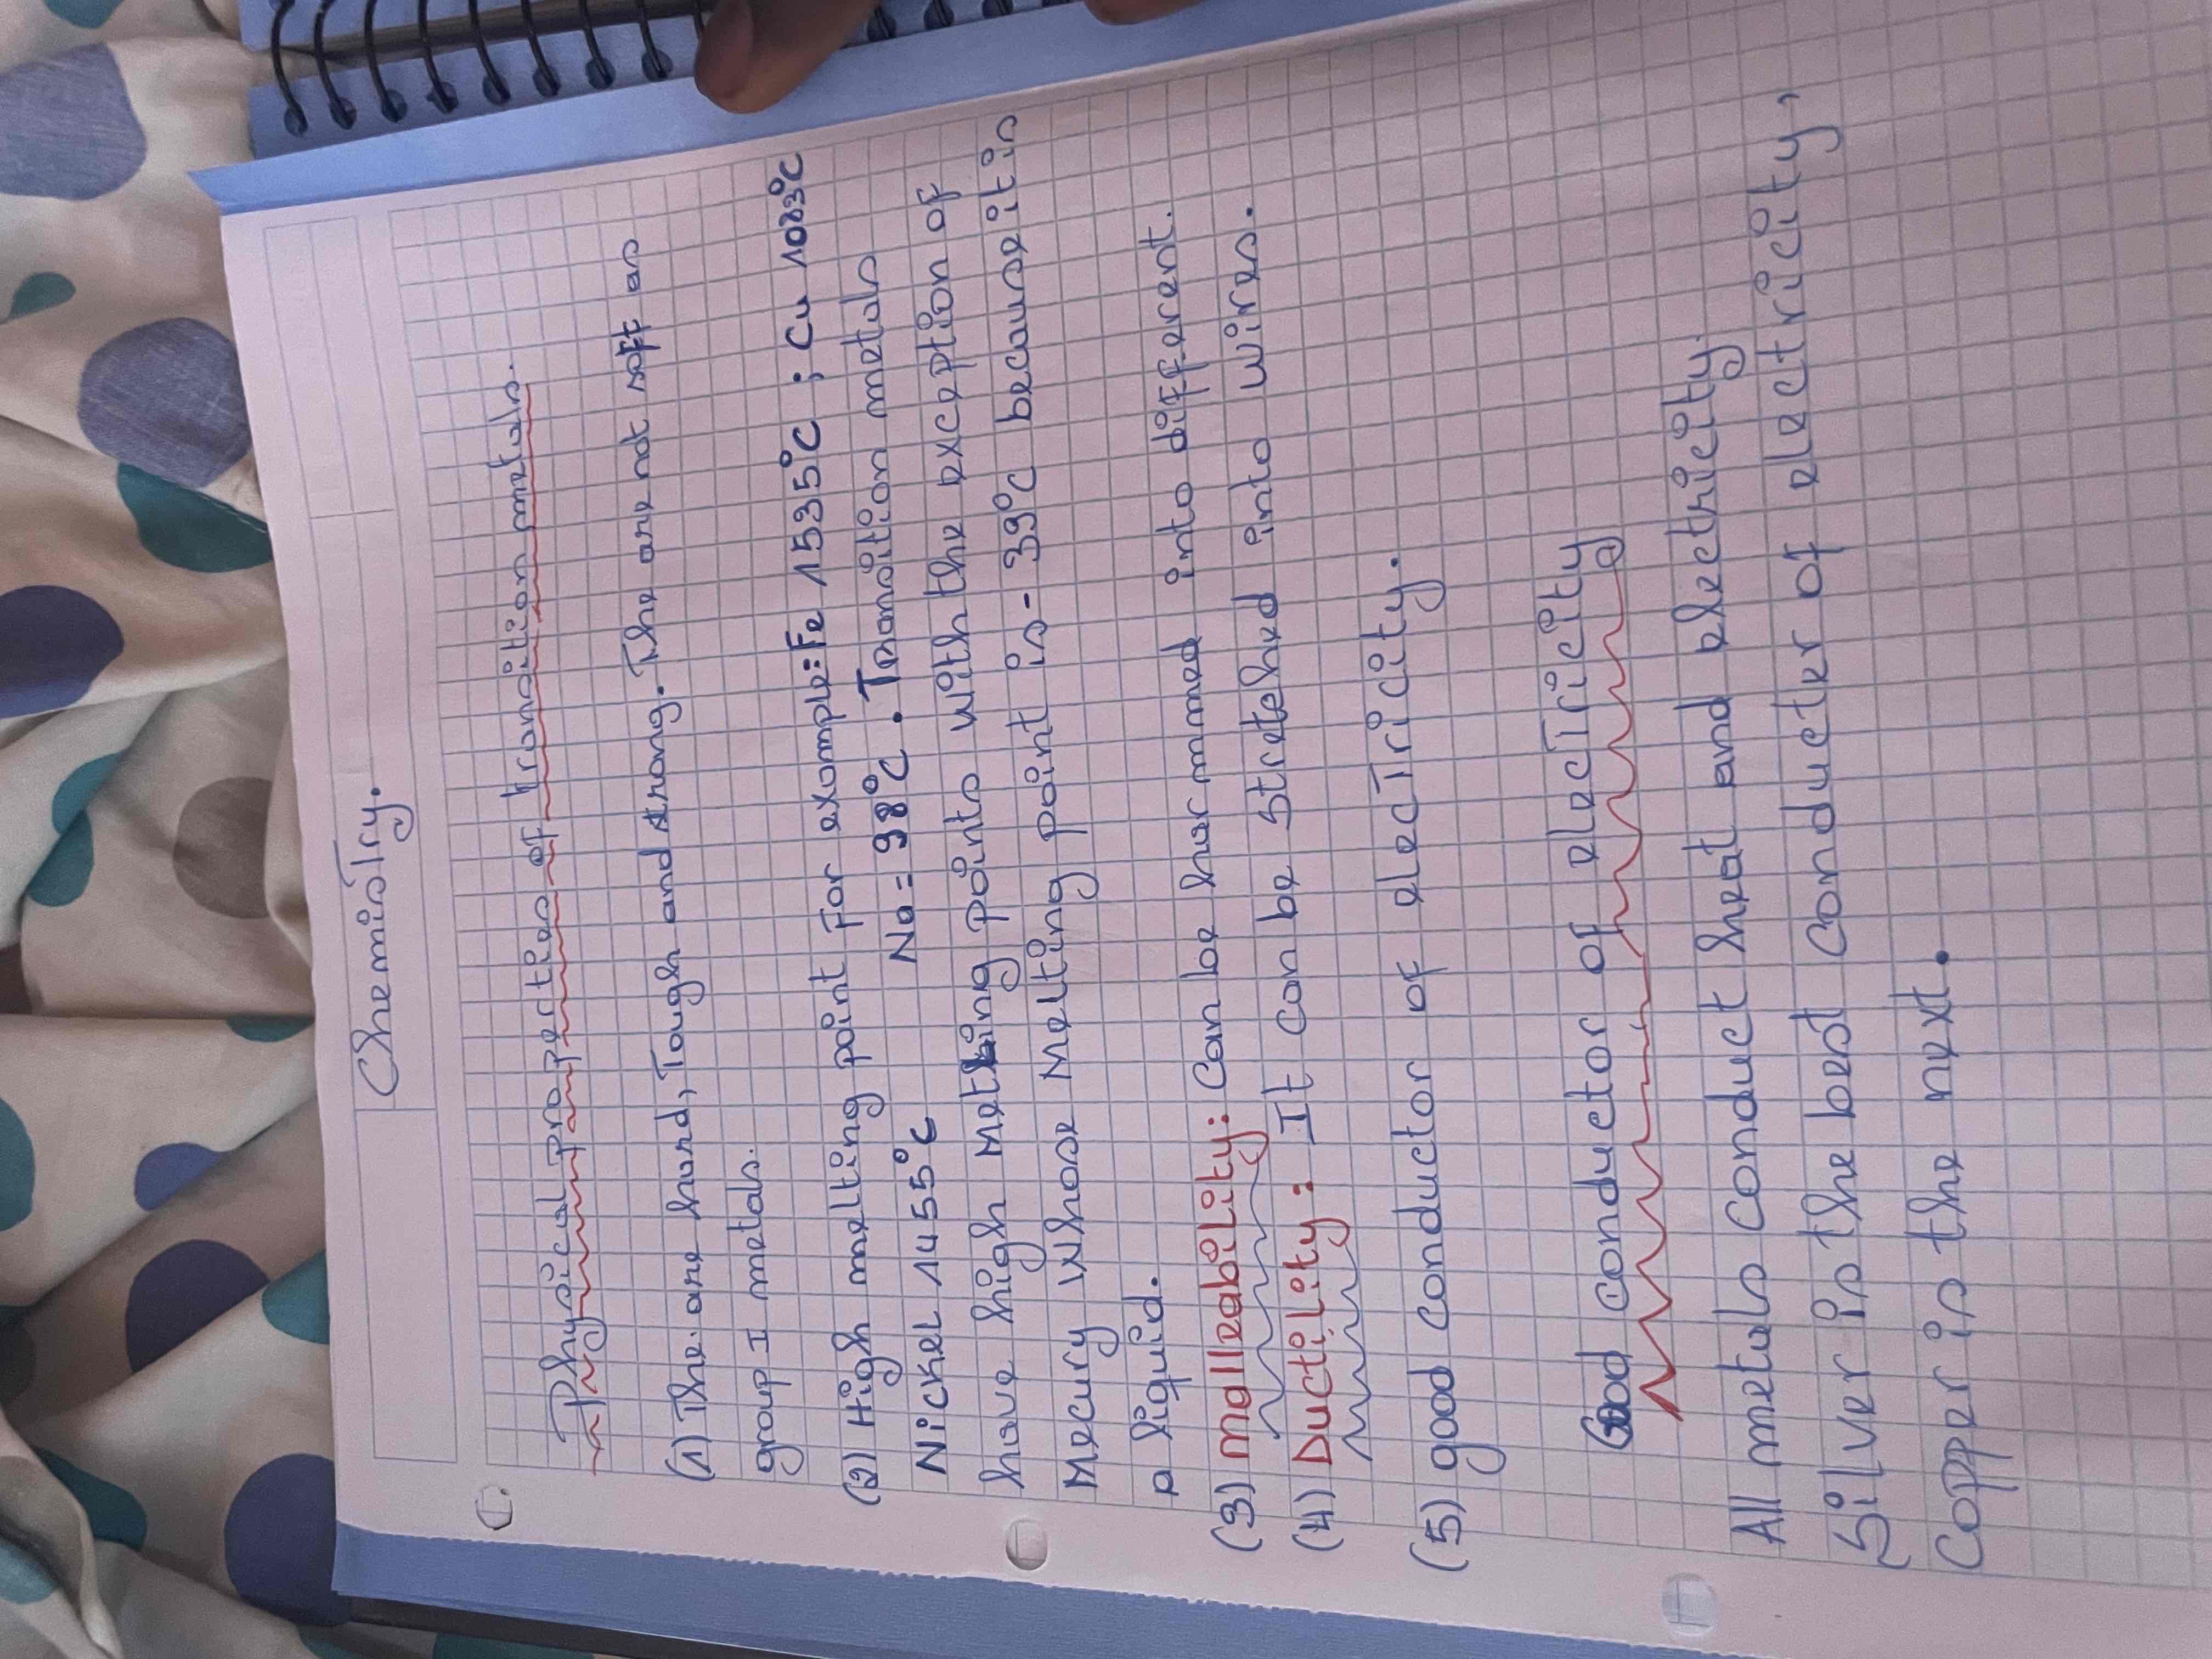 Chemistry.
Physical properties of transition metals.
(1) The are hard, Tough and strong. The are not soft as
group I metals.
(2) High melting point For example: Fe 1535°C ; Cu 1083°C
Nickel 1455°C Na = 98°C. Transition metals
have high Melting points with the exception of
Mecury whose Melting point is -39°C because it is
a liquid.
(3) malleability: Can be hammed into different.
(4) Ductility: It can be stretched into wires.
(5) good conductor of electricity.
Good conductor of electricity
All metals conduct heat and electricity.
Silver is the best conducter of electricity,
Copper is the next.